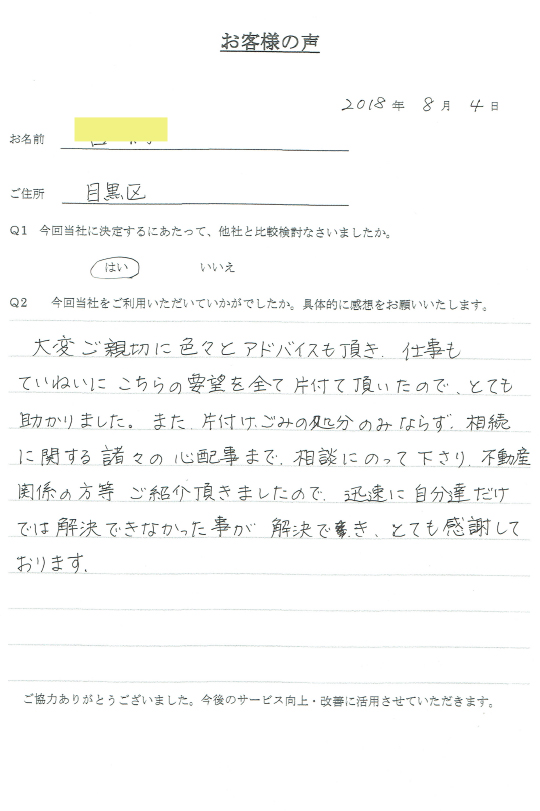 お客様の声
2018年 8月 4日
お名前
ご住所 目黒区
Q1 今回当社に決定するにあたって、他社と比較検討なさいましたか。
はい いいえ
Q2 今回当社をご利用いただいていかがでしたか。具体的に感想をお願いいたします。
大変ご親切に色々とアドバイスも頂き、仕事も
ていねいにこちらの要望を全て片付て頂いたので、とても
助かりました。また、片付け、ごみの処分のみならず、相続
に関する諸々の心配事まで、相談にのって下さり、不動産
関係の方等ご紹介頂きましたので、迅速に自分達だけ
では解決できなかった事が解決でき、とても感謝して
おります。
ご協力ありがとうございました。今後のサービス向上・改善に活用させていただきます。